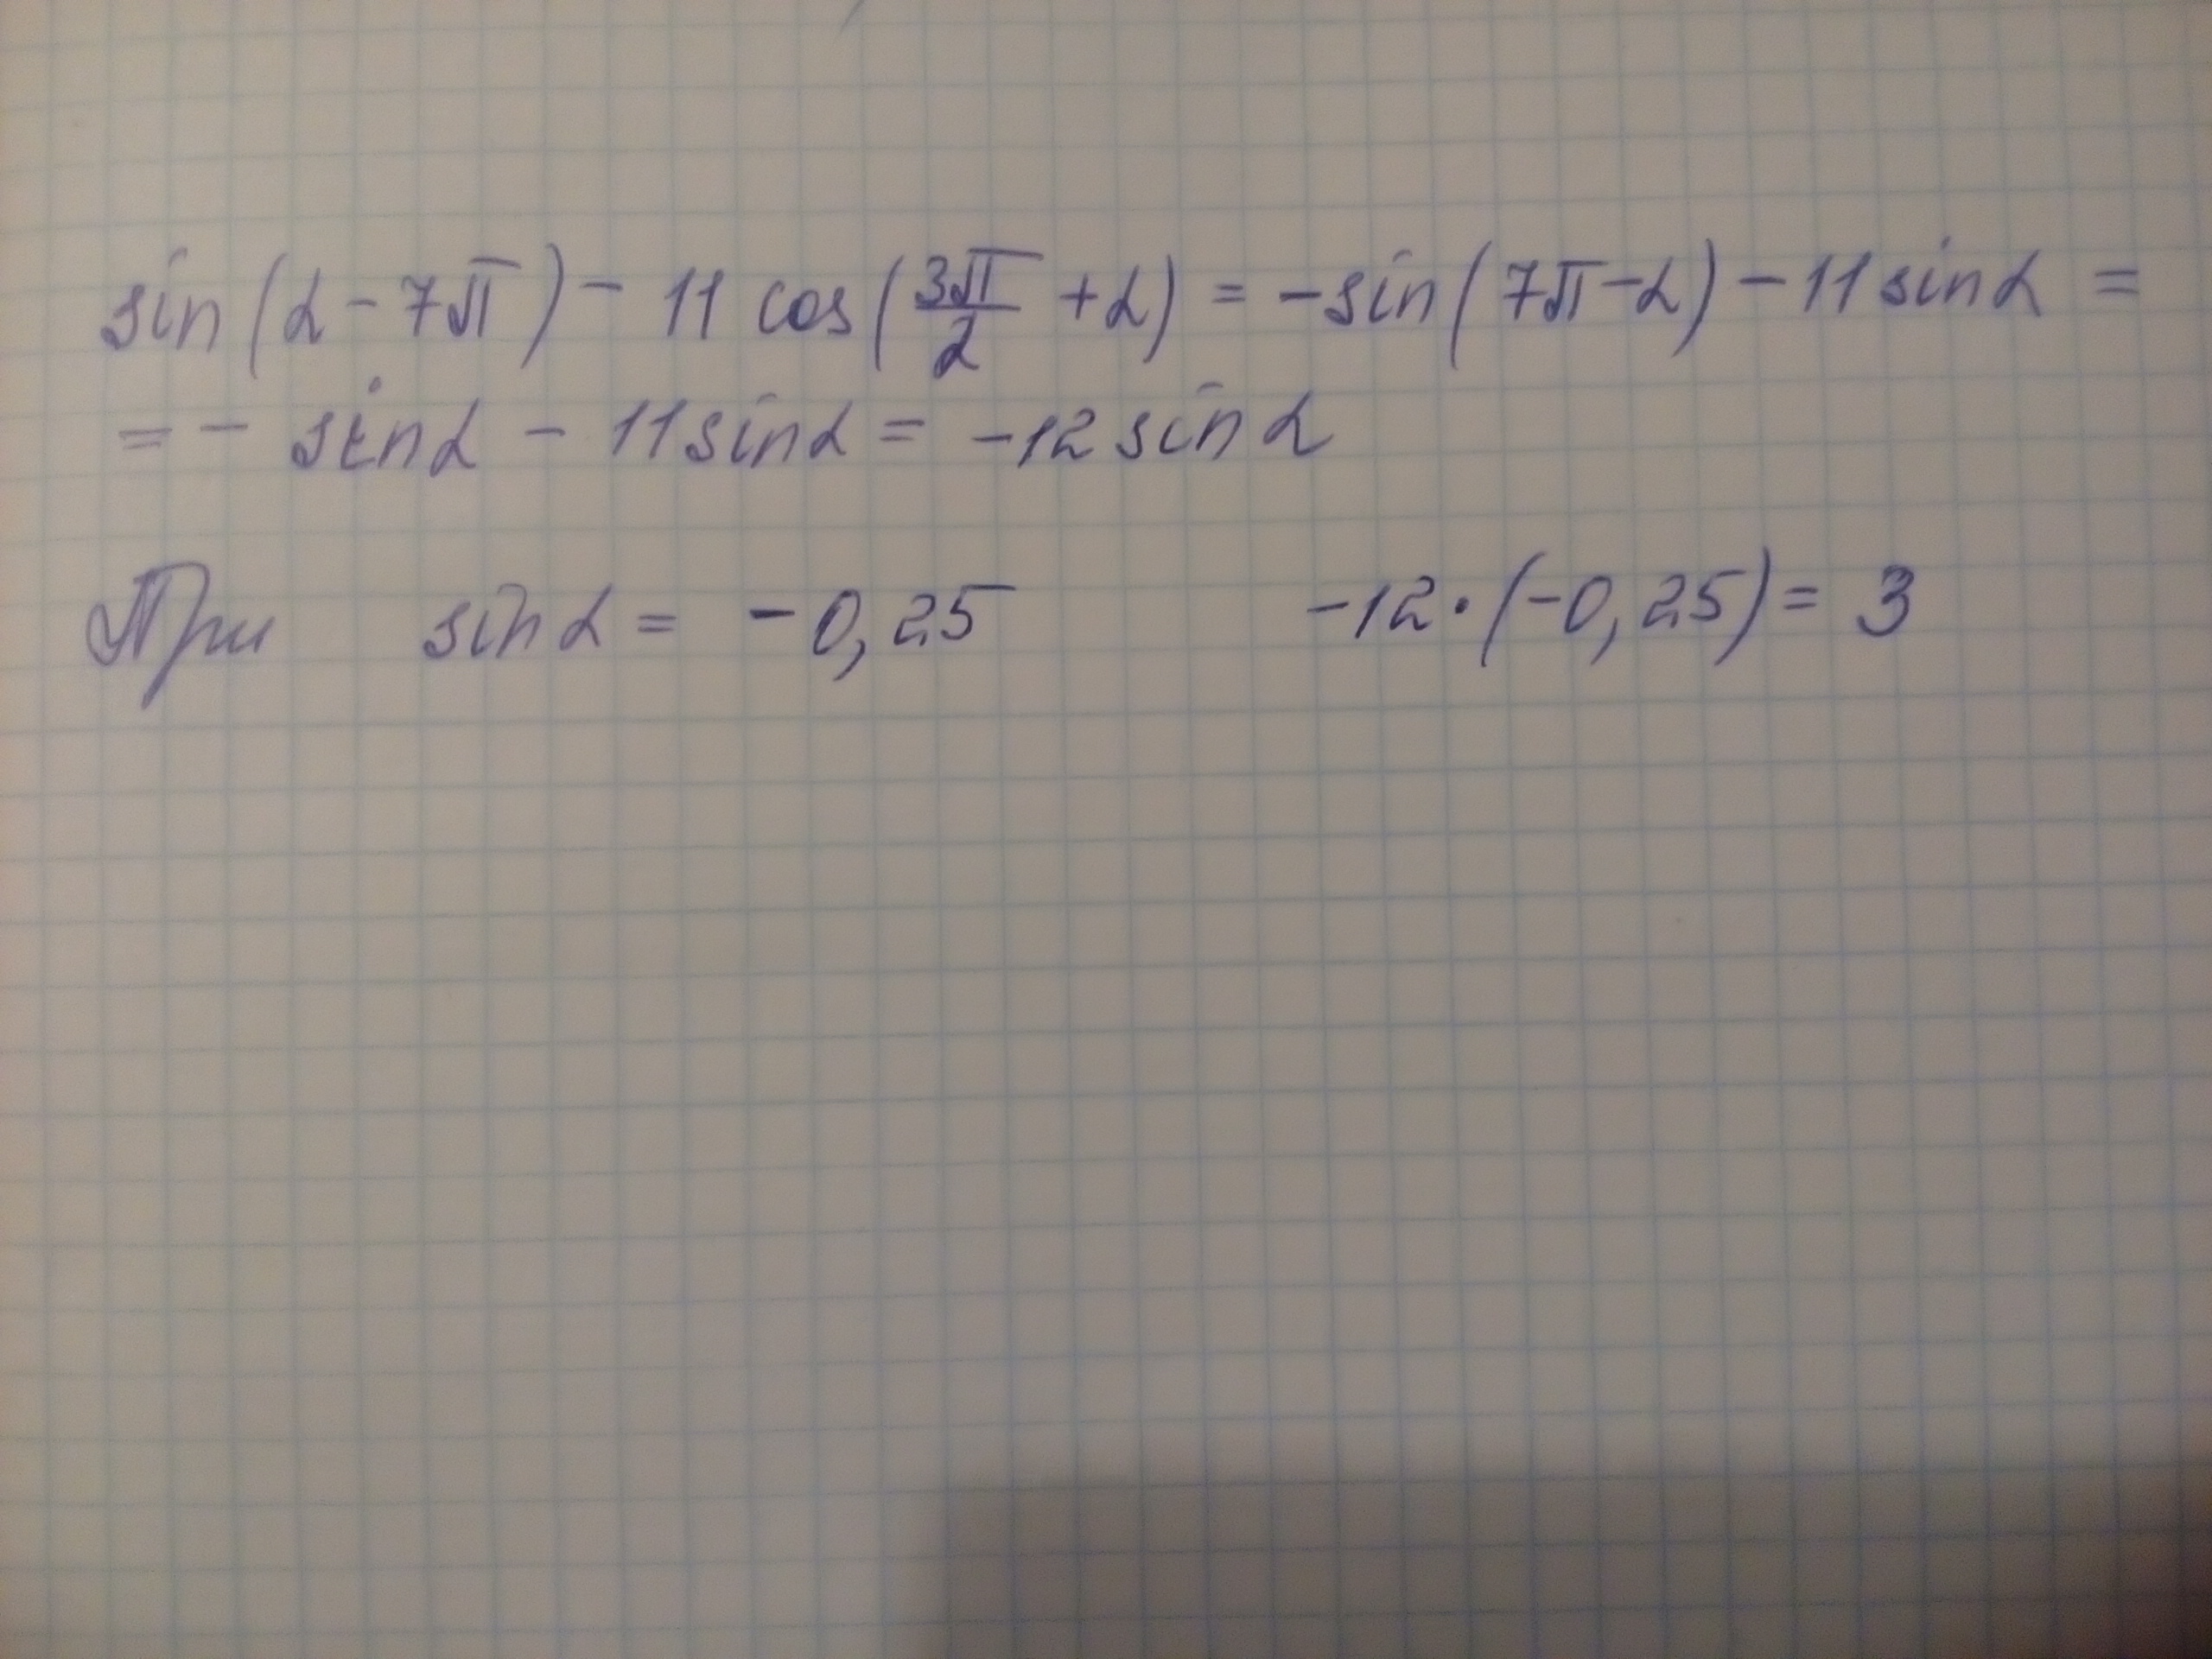 sin(α - 7π) - 11 cos(3π/2 + α) = -sin(7π - α) - 11 sinα =
= - sinα - 11 sinα = -12 sin α
При sin α = -0,25 -12·(-0,25) = 3